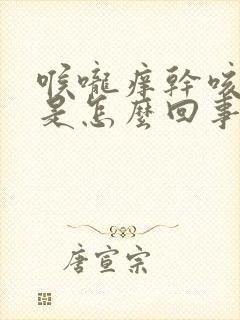 喉嚨痒幹咳
是怎麼回事
唐宣宗